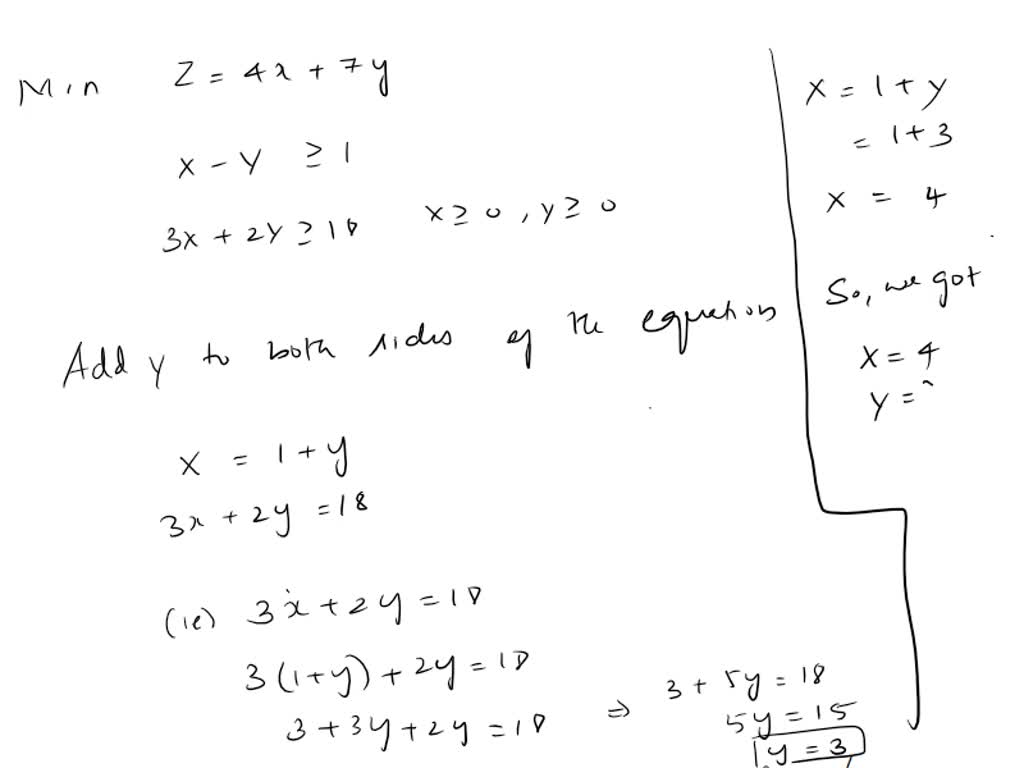 Min Z = 4x + 7y
x - y ≥ 1
3x + 2y ≥ 18 x ≥ 0, y ≥ 0
Add y to both sides of the equation
x = 1 + y
3x + 2y = 18
(ie) 3x + 2y = 18
3(1+y) + 2y = 18
3 + 3y + 2y = 18
⇒ 3 + 5y = 18
5y = 15
y = 3
x = 1 + y
= 1 + 3
x = 4
So, we got
x = 4
y =